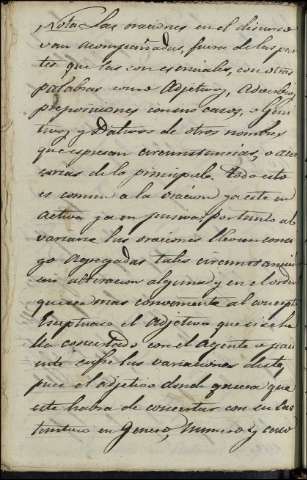 Nota: las oraciones en el discurso
van acompañadas, fuera de las par
tes que las son esenciales, con otras
palabras como Adjetivos, Adverbios,
preposiciones con sus casos, Geni
tivos, y Dativos de otros nombres
que espresan circunstancias, o acce
sorias de lo principal. Todo esto
es comun a la oracion ya este en
activa ya en pasiva por tanto al
variarse las oraciones llevan consi
go agregadas tales circunstancias
sin alteracion alguna y en el orden
que sea mas conveniente al
Eseptuase el adjetivo que se ha
lla concertado con el Agente o paci
ente sufre las variaciones de este,
pues el adjetivo donde quiera que
este habra de concertar con su sus
tantivo en Genero, Numero y caso